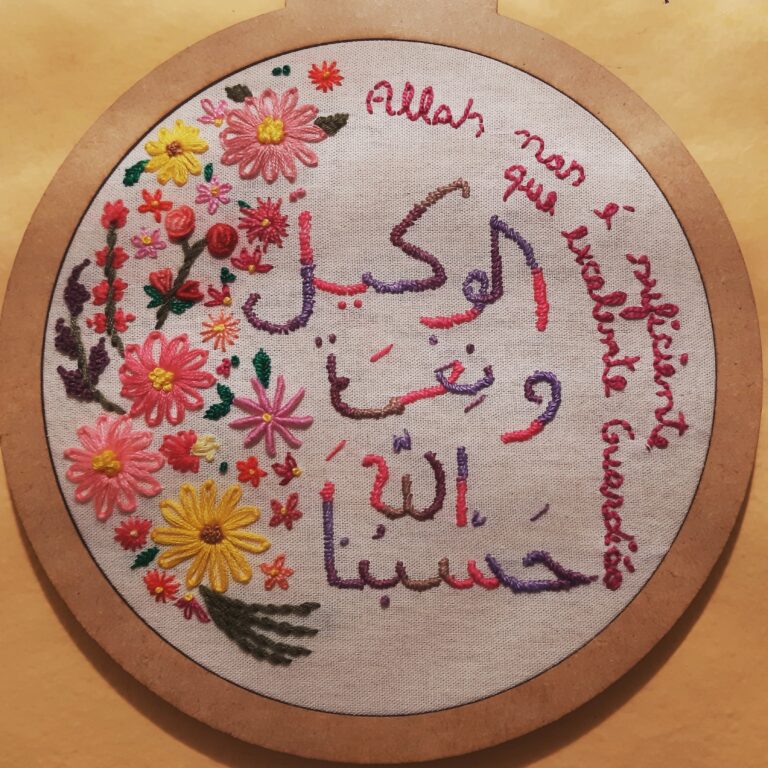 Allah nos é suficiente
que excelente Guardião
حَسْبُنَا
اللّٰه
ونعم
الوكيل